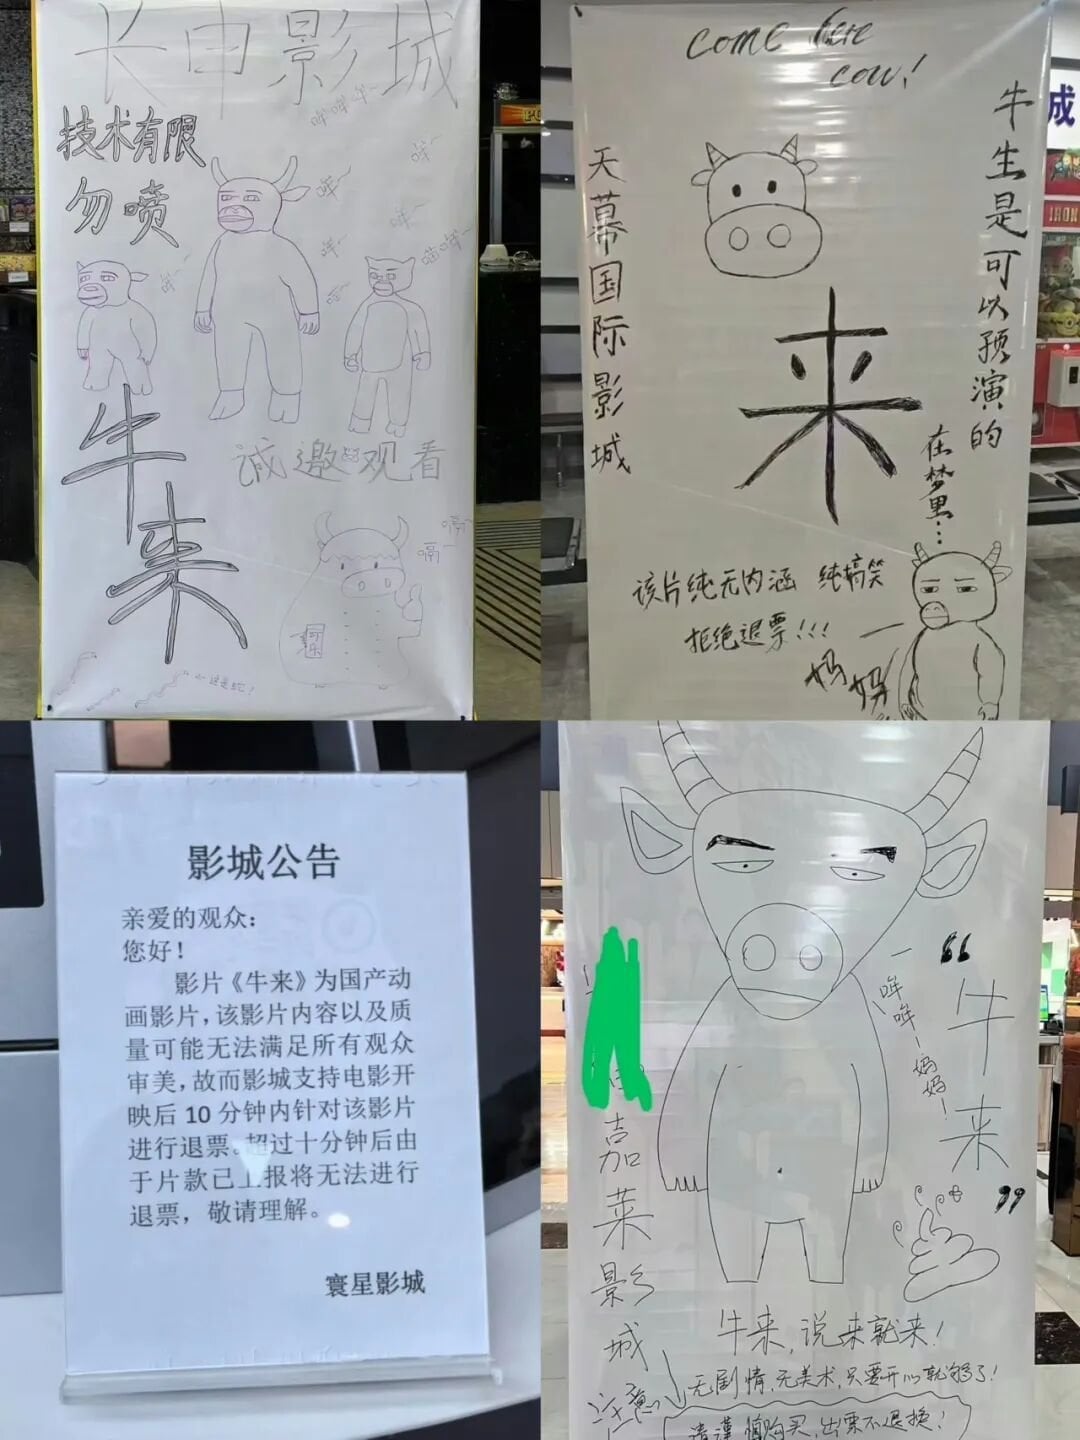 长申影城
技术有限
勿喷
哞哞哞~
哞~
哞~
哞~
哞~
喵哞~
哞~
牛来
诚邀您观看
嗝~
嗝~
←这是蛇!
come here
cow!
天幕国际影城
牛生是可以预演的
在梦里…
来
该片纯无内涵 纯搞笑
拒绝退票!!!
妈妈
成
IRON
影城公告
亲爱的观众:
您好!
影片《牛来》为国产动
画影片,该影片内容以及质
量可能无法满足所有观众
审美,故而影城支持电影开
映后 10 分钟内针对该影片
进行退票。超过十分钟后由
于片款已上报将无法进行
退票,敬请理解。
寰星影城
嘉莱影城
“牛来”
一哞哞一妈妈一!
牛来,说来就来!
无剧情,无美术,只要开心就够了!
注意
请谨慎购买,出票不退换!